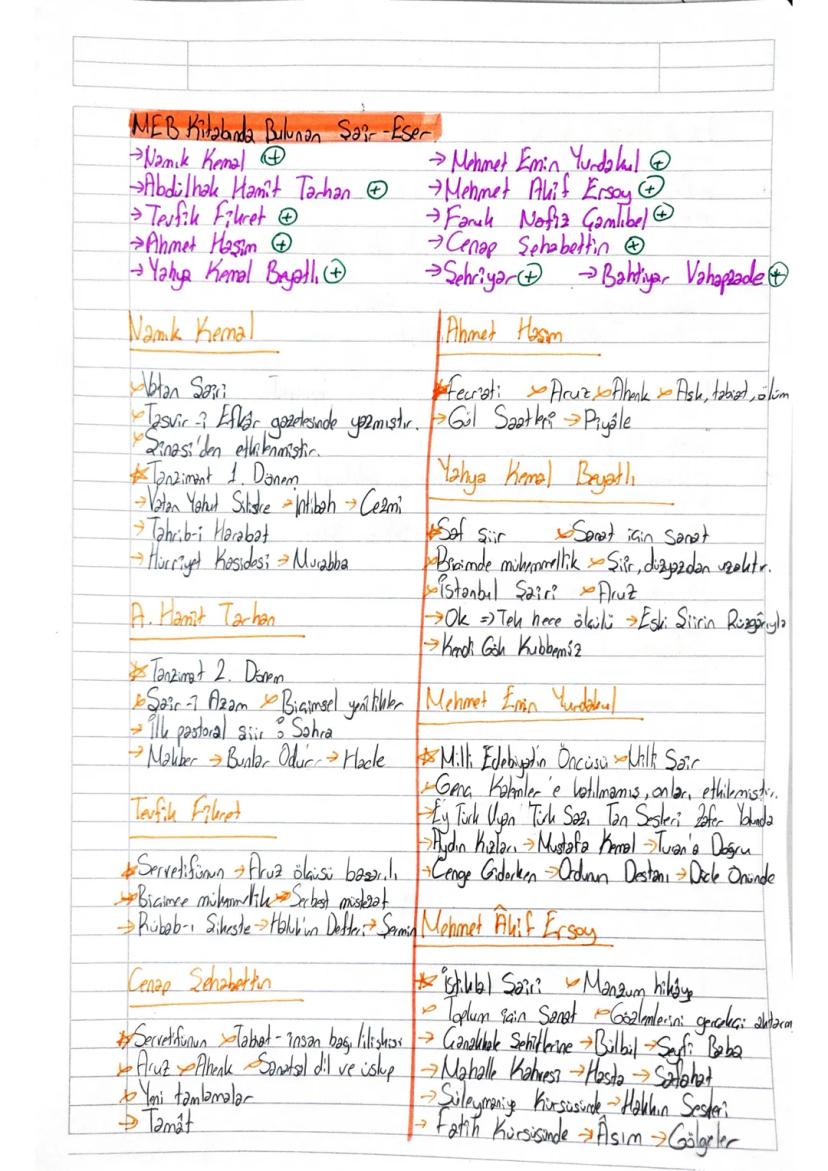 MEB Kitabında Bulunan Şair-Eser
→Namık Kemal +
→Abdülhak Hamit Tarhan +
→Tevfik Fikret +
→Ahmet Haşim +
→Yahya Kemal Beyatlı +
→Mehmet Emin Yurdakul +
→Mehmet Akif Ersoy +
→Faruk Nafiz Çamlıbel +
→Cenap Şehabettin +
→Şehriyar + →Bahtiyar Vahapzade +
Namık Kemal
Vatan Şairi
Tasvir-i Efkâr gazetesinde yazmıştır.
Şinasi'den etkilenmiştir.
Tanzimant 1. Dönem
→Vatan Yahut Silistre →İntibah →Cezmi
→Tahrib-i Harabat
→Hürriyet Kasidesi →Murabba
A. Hamit Tarhan
Tanzimat 2. Dönem
Şair-i Azam Biçimsel yenilikler
→İlk pastoral şiir: Sahra
→Makber →Bunlar Odur →Hacle
Tevfik Fikret
Servetifünun →Aruz ölçüsü başarılı
Biçimce mükemmellik Serbest müstezat
→Rübab-ı Şikeste →Haluk'un Defteri →Şermin
Cenap Şehabettin
Servetifünun Tabiat-insan bağı/ilişkisi
Aruz Ahenk Sanatsal dil ve üslup
Yeni tamlamalar
→Tamât
Ahmet Haşim
Fecriati Aruz Ahenk Aşk, tabiat, ölüm
→Göl Saatleri →Piyâle
Yahya Kemal Beyatlı
Saf şiir Sanat için sanat
Biçimde mükemmellik Şiir, düzyazdan uzaktır.
İstanbul Şairi Aruz
→Ok => Tek hece ölçülü →Eski Şiirin Rüzgârıyla
→Kendi Gök Kubbemiz
Mehmet Emin Yurdakul
Milli Edebiyatın Öncüsü Milli Şair
Genç Kalemler'e katılmamış, onları etkilemiştir.
→Ey Türk Uyan Türk Sazı Tan Sesleri Zafer Yolunda
→Aydın Kızları →Mustafa Kemal →Turan'a Doğru
→Cenge Giderken →Ordunun Destanı →Dicle Önünde
Mehmet Âkif Ersoy
İstiklal Şairi Manzum hikâye
Toplum için Sanat Gözlemlerini gerçekçi aktarım
→Çanakkale Şehitlerine →Bülbül →Seyfi Baba
→Mahalle Kahvesi →Hasta →Safahat
→Süleymaniye Kürsüsünde →Hakkın Sesleri
→Fatih Kürsüsünde →Âsım →Gölgeler